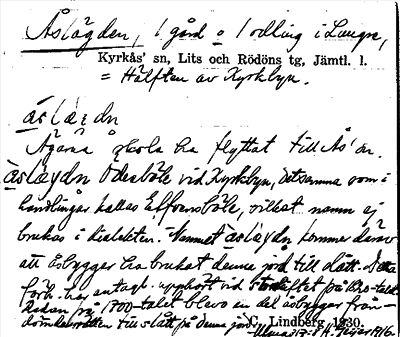 Åslägden, 1 gård o 1 odling i Lunge,
Kyrkås' sn, Lits och Rödöns tg, Jämtl. l.
= Hälften av Kyrkbyn.
áslæɣdn
Ägarna skola ha flyttat till Ås' sn.
àslæɣdn Ödesböle vid Kyrkbyn, detsamma som i
handlingar kallas Elfvansböle, vilket namn ej
brukas i dialekten. Namnet àslæɣdn kommer därav
att åsbyggar ha brukat denna jord till slått. Detta
förh. har antagl. upphört vid storskiftet på 1820-talet
Redan på 1700-talet blevo en del åsbyggar från-
dömda rätten till slått på denna jord.
C. Lindberg 1930.